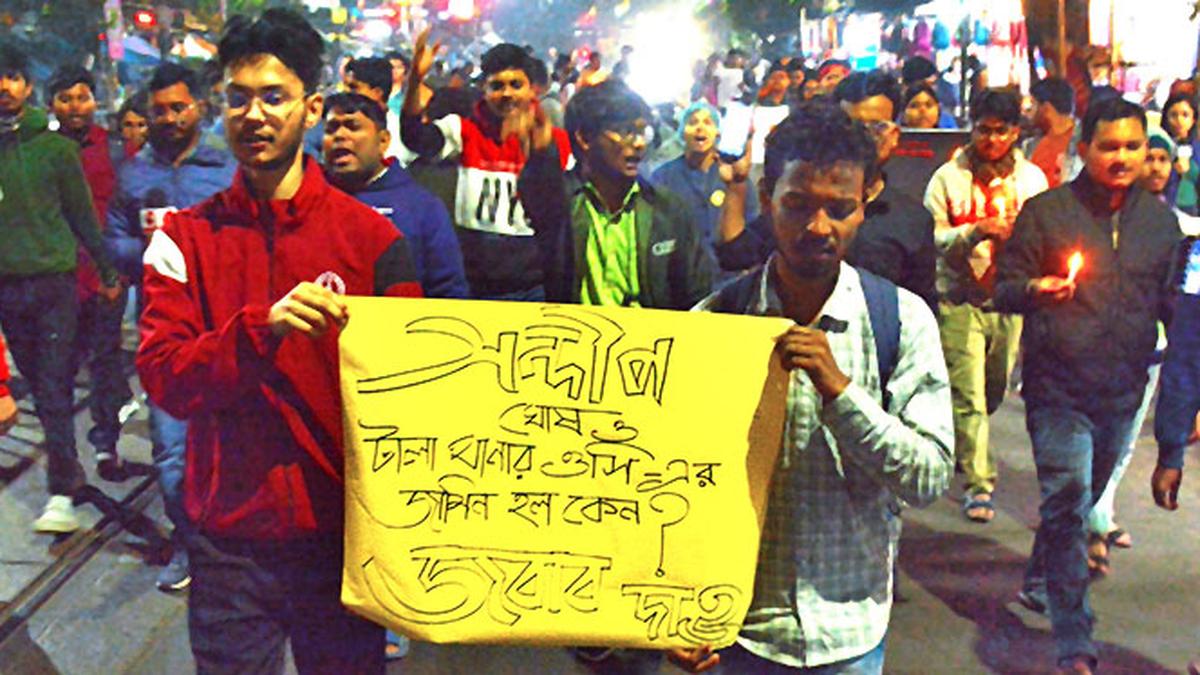 সন্দীপ
ঘোষ ও
টালা থানার ওসি-এর
জামিন হল কেন?
জবাব দাও